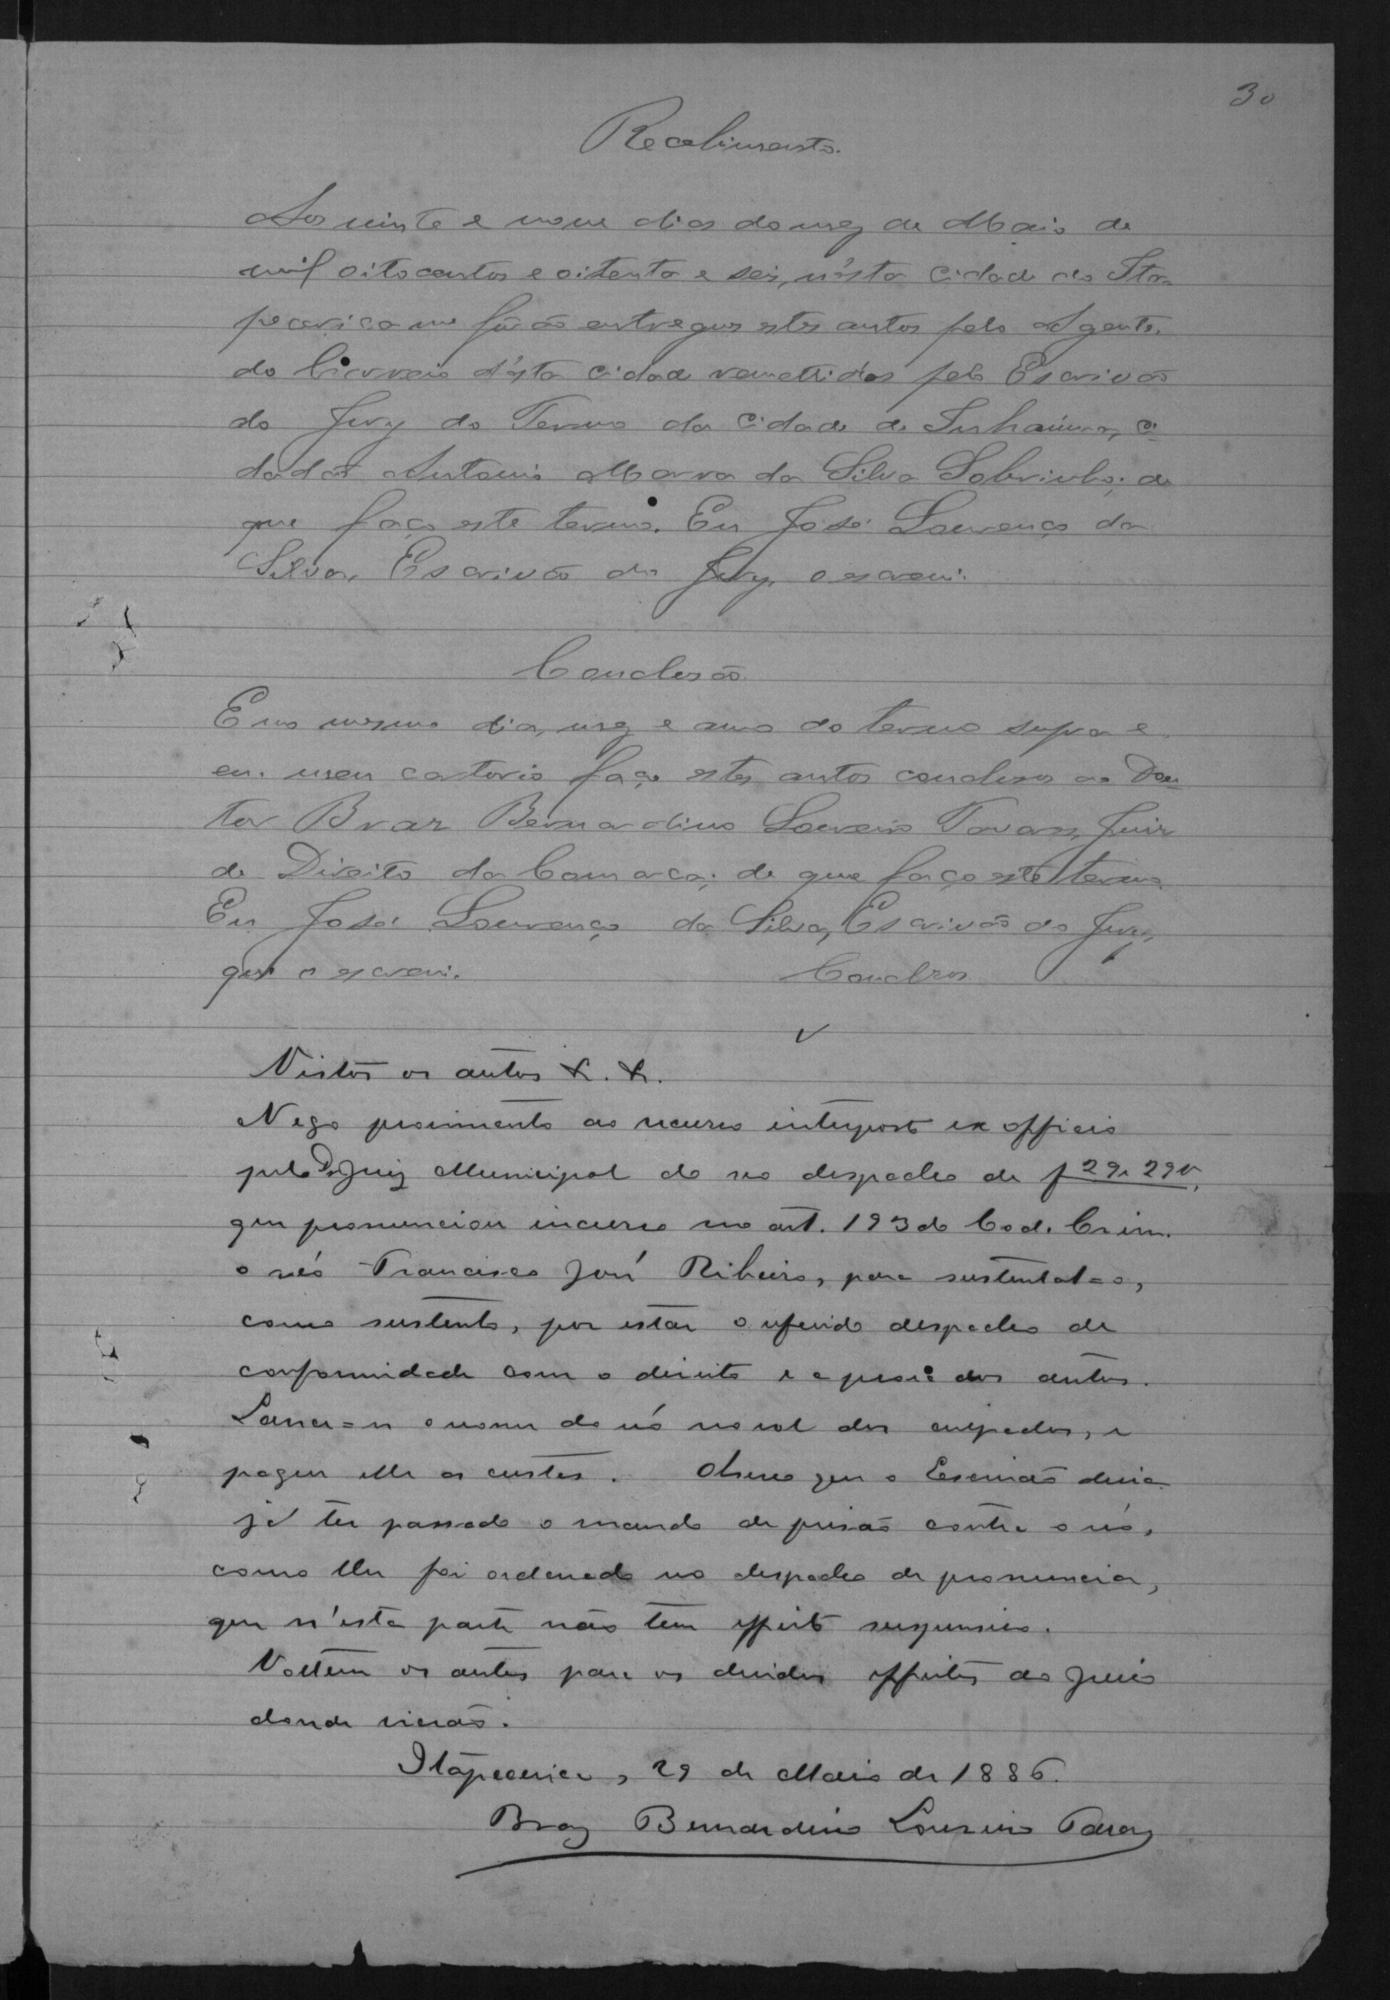 30
Recebimento.
Aos vinte e nove dias do mez de Maio de
mil oitocentos e oitenta e seis, n'esta cidade de Ita-
pecerica me forão entregues estes autos pelo Agente
do Correio d'esta cidade remettidos pelo Escrivão
do Jury do Termo da cidade de Inhaúma, ci-
dadão Antonio Marra da Silva Sobrinho; de
que faço este termo. Eu José Lourenço da
Silva, Escrivão do Jury, o escrevi.
Conclusão
E no mesmo dia, mez e anno do termo supra e
em meu cartorio faço estes autos conclusos ao Dou-
tor Braz Bernardino Loureiro Tavares, Juiz
de Direito da Comarca; de que faço este termo.
Eu José Lourenço da Silva, Escrivão do Jury,
que o escrevi. Conclsos
Vistos os autos &. &.
Nego provimento ao recurso interposto ex officio
pelo Dr Juiz Municipal do seo despacho de f 29 a 29v,
que pronunciou incurso no art. 193 do Cod. Crim.
o réo Francisco José Ribeiro, para sustental-o,
como sustento, por estar o referido despacho de
conformidade com o direito e a prova dos autos.
Lance-se o nome do réo no rol dos culpados, e
pague elle as custas. Observo que o Escrivão devia
já ter passado o mando de prisão contra o réo,
como lhe foi ordenado no despacho de pronuncia,
que n'esta parte não tem effeito suspensivo.
Voltem os autos para os devidos effeitos ao Juizo
donde vierão.
Itapecerica, 29 de Maio de 1886.
Braz Bernardino Loureiro Tavares